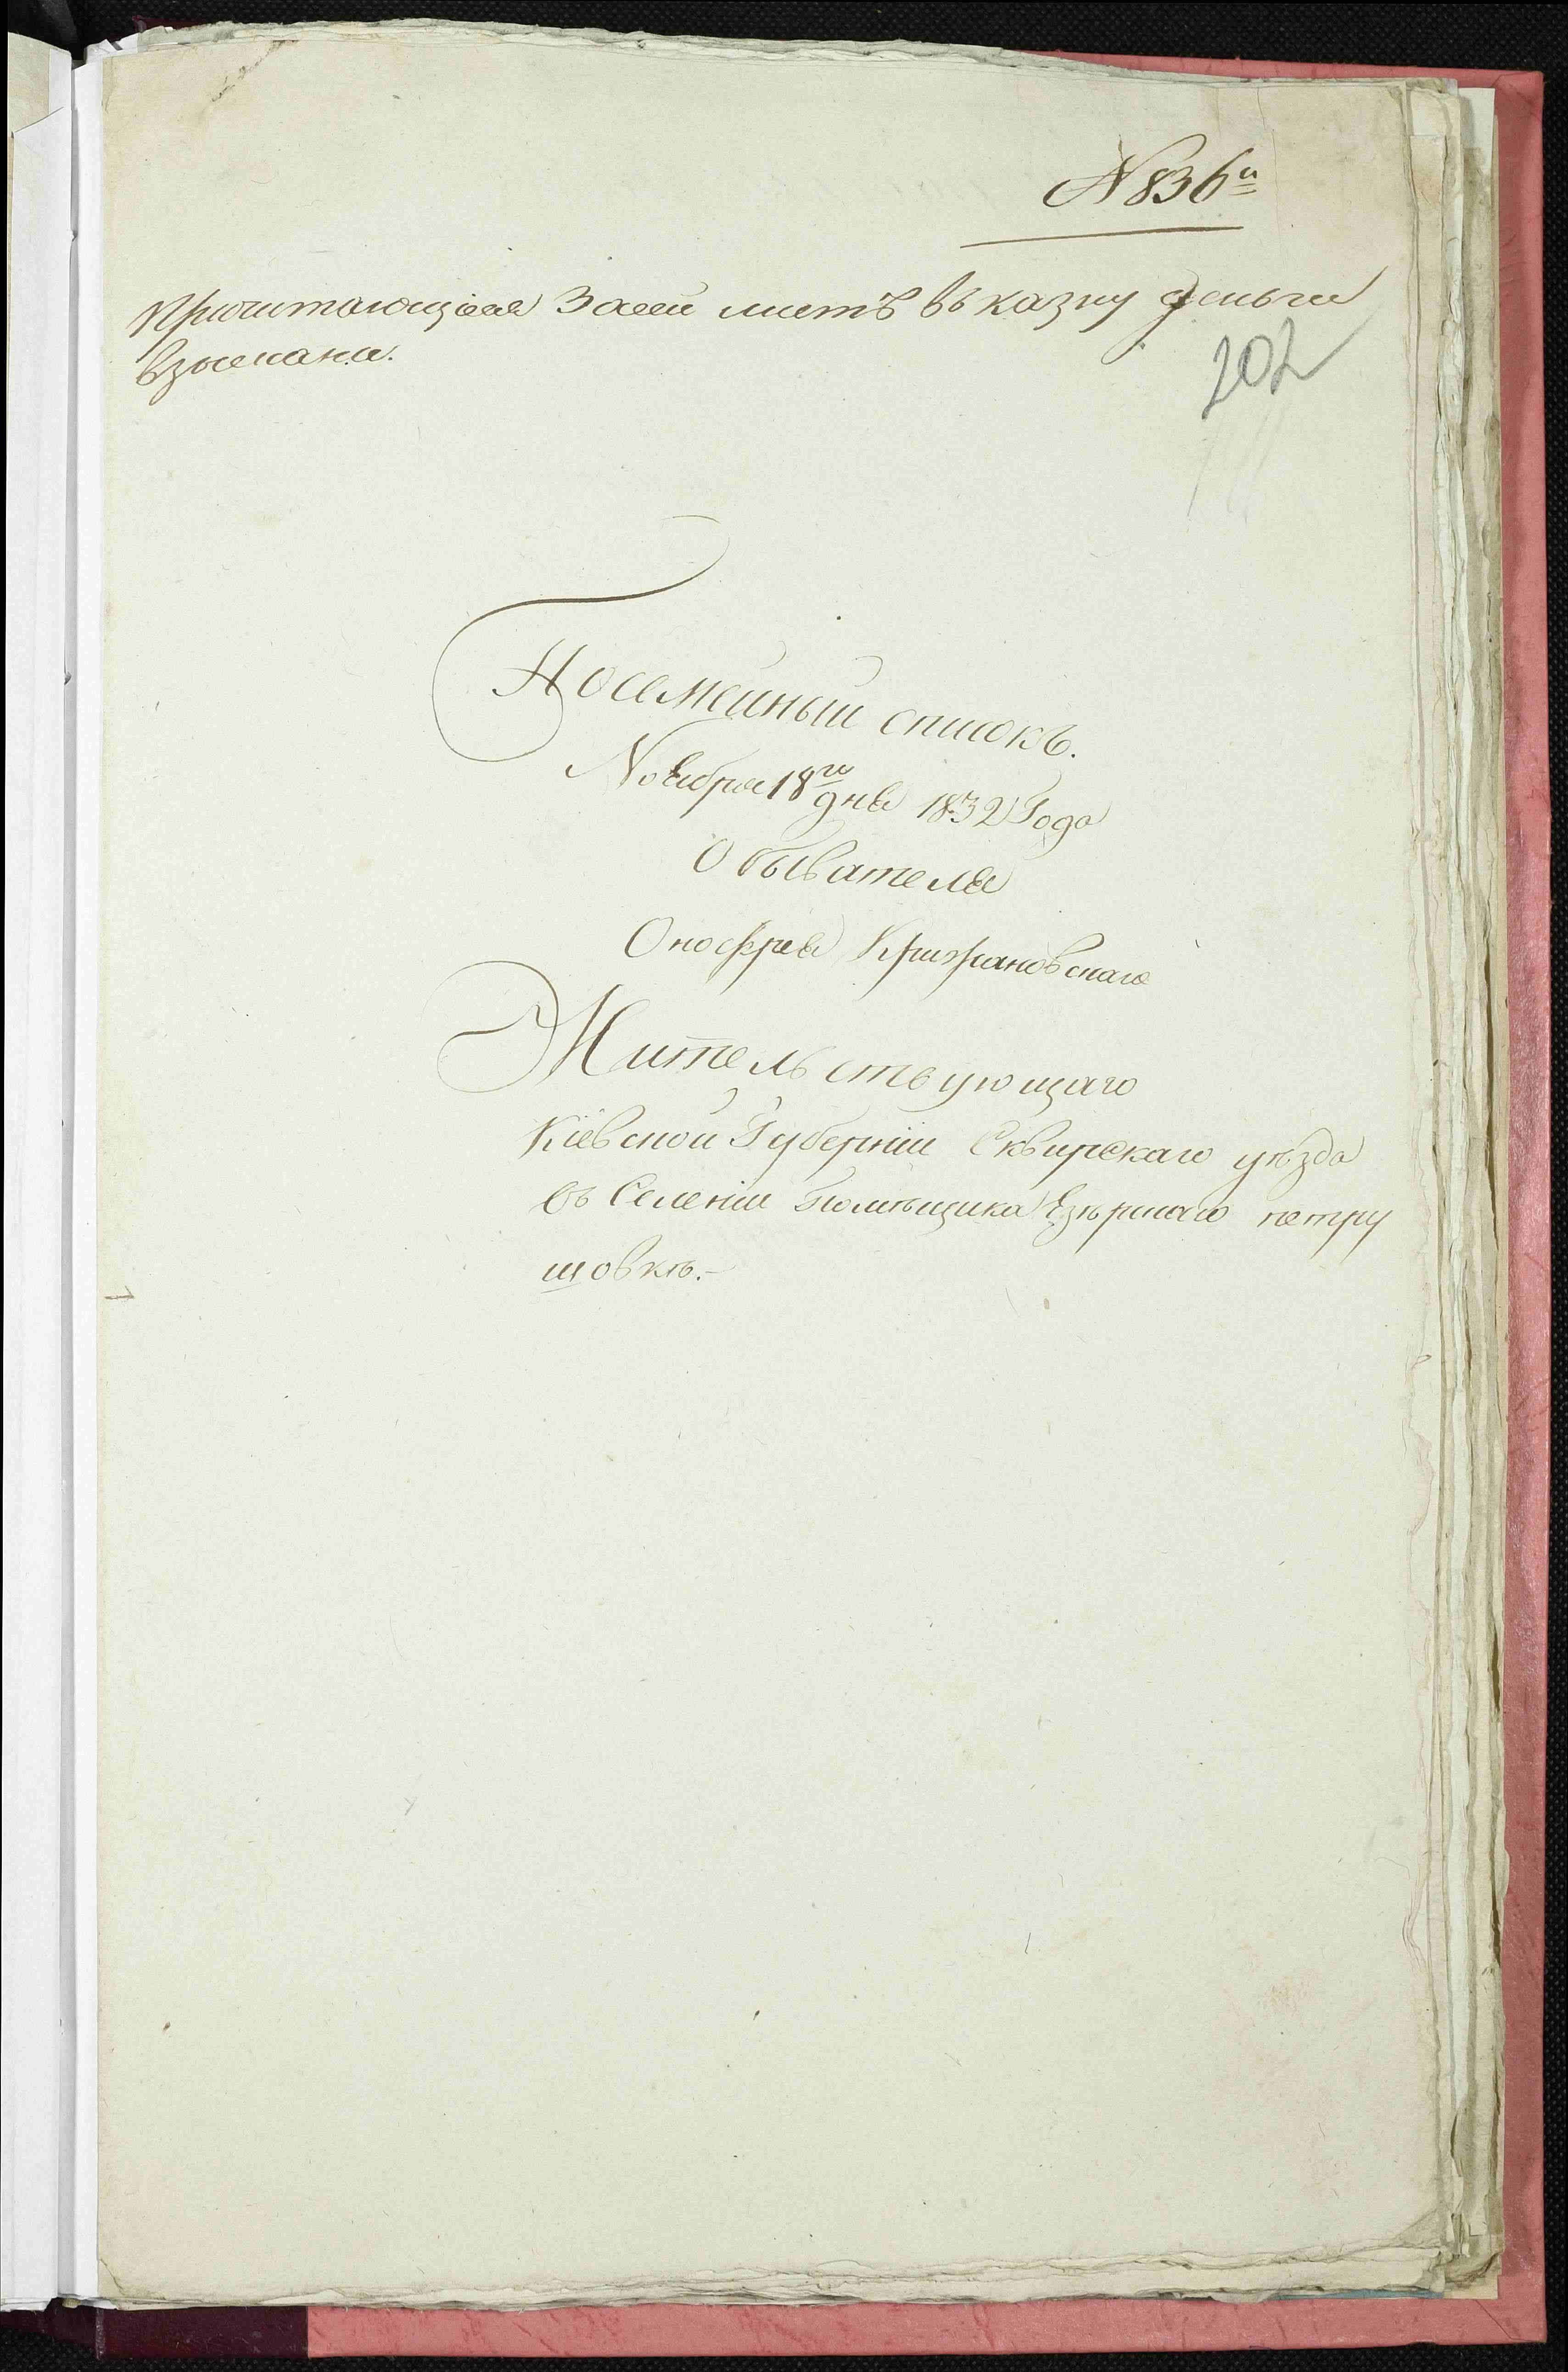 N 836й
Причитающіеся За сей листъ въ казну деньги
взысканы.
202
Посемейный списокъ.
Ноября 18го дня 1832 Года
Обывателя
Онофрея Крижановскаго
Жительствующаго
Кіевской Губерніи Сквирскаго уѣзда
въ Селеніи Помѣщика Езѣрскаго петру
шовкѣ.-